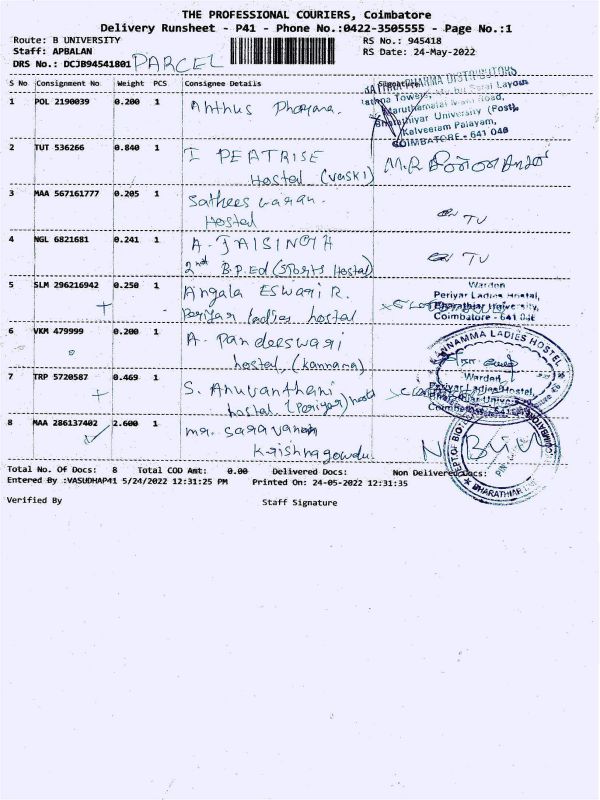 THE PROFESSIONAL COURIERS, Coimbatore
Delivery Runsheet - P41 - Phone No.:0422-3505555 - Page No.:1
Route: B UNIVERSITY
RS No.: 945418
Staff: APBALAN
RS Date: 24-May-2022
DRS No.: DCJB94541801 PARCEL
S No Consignment No Weight PCS Consignee Details
1 POL 2190039 0.200 1 Anthus Pharma.
PHARMA DISTRIBUTORS
Towers,
Maruthamalai Main Road,
Bharathiyar University (Post),
Kalveeram Palayam,
COIMBATORE - 641 046
2 TUT 536266 0.840 1 I PEATRISE
Hostel
3 MAA 567161777 0.205 1 Satheeswaran.
Hostel
TV
4 NGL 6821681 0.241 1 A. JAISINGH
2nd B.P.Ed (Sports Hostel)
TV
5 SLM 296216942 0.250 1 Angala Eswari R.
Periyar ladies hostel
Warden
Periyar Ladies Hostel,
Bharathiar University,
Coimbatore - 641 046
6 VKM 479999 0.200 1 A. Pandeeswari
hostel, (kannama)
KANNAMMA LADIES HOSTEL
7 TRP 5720587 0.469 1 S. Anuvanthani
hostel (Periyar) hostel
Warden
Periyar Ladies Hostel,
Bharathiar University
Coimbatore
8 MAA 286137402 2.600 1 mr. Saravanan
Krishnagowdu.
DEPT OF
BHARATHIAR
Total No. Of Docs: 8 Total COD Amt: 0.00 Delivered Docs: Non Delivered Docs:
Entered By :VASUDHAP41 5/24/2022 12:31:25 PM Printed On: 24-05-2022 12:31:35
Verified By Staff Signature